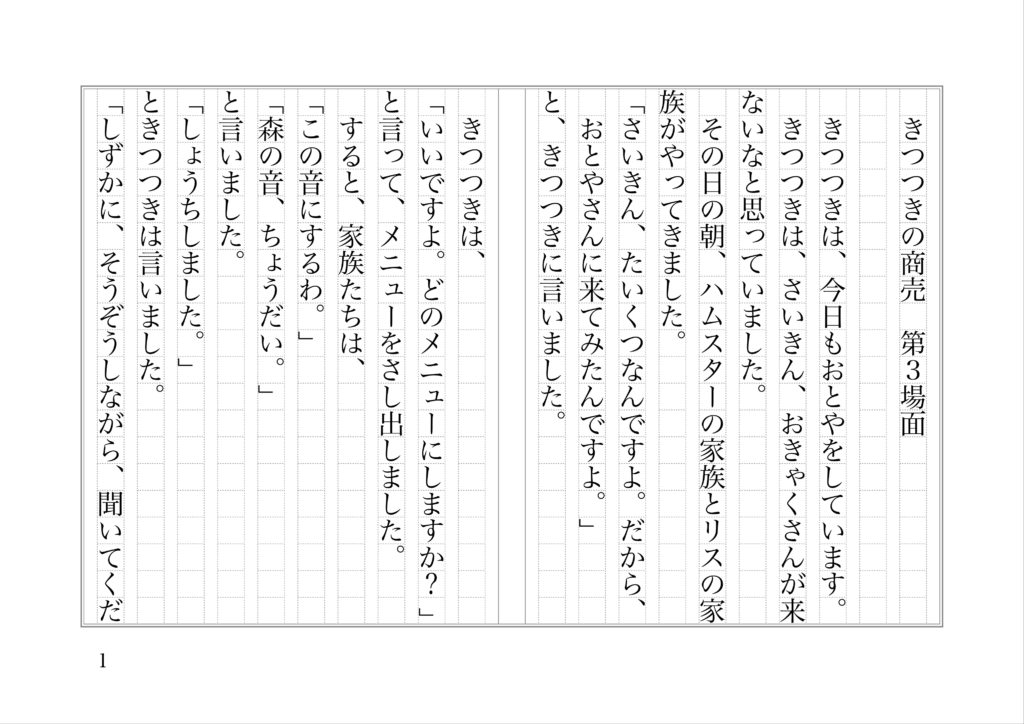 きつつきの商売　第３場面
きつつきは、今日もおとやをしています。
きつつきは、さいきん、おきゃくさんが来
ないなと思っていました。
その日の朝、ハムスターの家族とリスの家
族がやってきました。
「さいきん、たいくつなんですよ。だから、
おとやさんに来てみたんですよ。」
と、きつつきに言いました。
きつつきは、
「いいですよ。どのメニューにしますか？」
と言って、メニューをさし出しました。
すると、家族たちは、
「この音にするわ。」
「森の音、ちょうだい。」
と言いました。
「しょうちしました。」
ときつつきは言いました。
「しずかに、そうぞうしながら、聞いてくだ
1